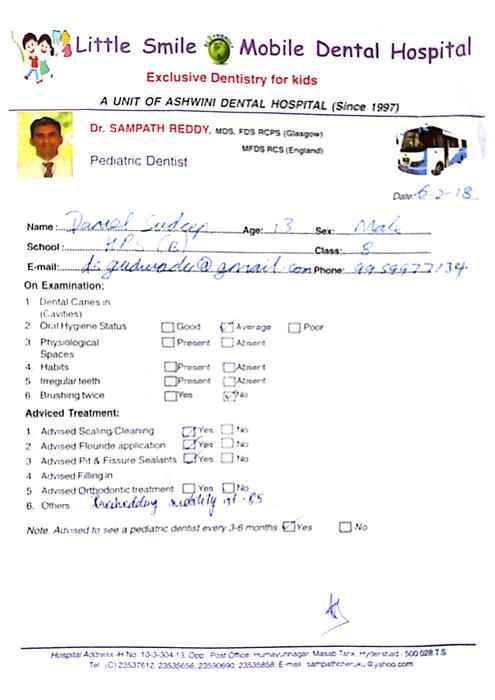 Little Smile Mobile Dental Hospital
Exclusive Dentistry for kids
A UNIT OF ASHWINI DENTAL HOSPITAL (Since 1997)
Dr. SAMPATH REDDY, MDS, FDS RCPS (Glasgow)
MFDS RCS (England)
Pediatric Dentist
Date: 6-2-18
Name: Danish Sudeep Age: 13 Sex: Male
School: HPS (B) Class: 8
E-mail: @gmail.com Phone: 9959977134
On Examination:
1 Dental Caries in
(Cavities)
2 Oral Hygiene Status Good Average Poor
3 Physiological Present Absent
Spaces
4 Habits Present Absent
5 Irregular teeth Present Absent
6 Brushing twice Yes No
Adviced Treatment:
1 Advised Scaling/Cleaning Yes No
2 Advised Flouride application Yes No
3 Advised Pit & Fissure Sealants Yes No
4 Advised Filling in
5 Advised Orthodontic treatment Yes No
6. Others mobility
Note. Advised to see a pediatric dentist every 3-6 months Yes No
Hospital Address -H No. 10-3-304-13, Opp. Post Office, Humayunnagar, Masab Tank, Hyderabad - 500 028 T.S.
Tel: (C) 23537612, 23535656, 23530690, 23535858, E-mail: sampathcheruku@yahoo.com